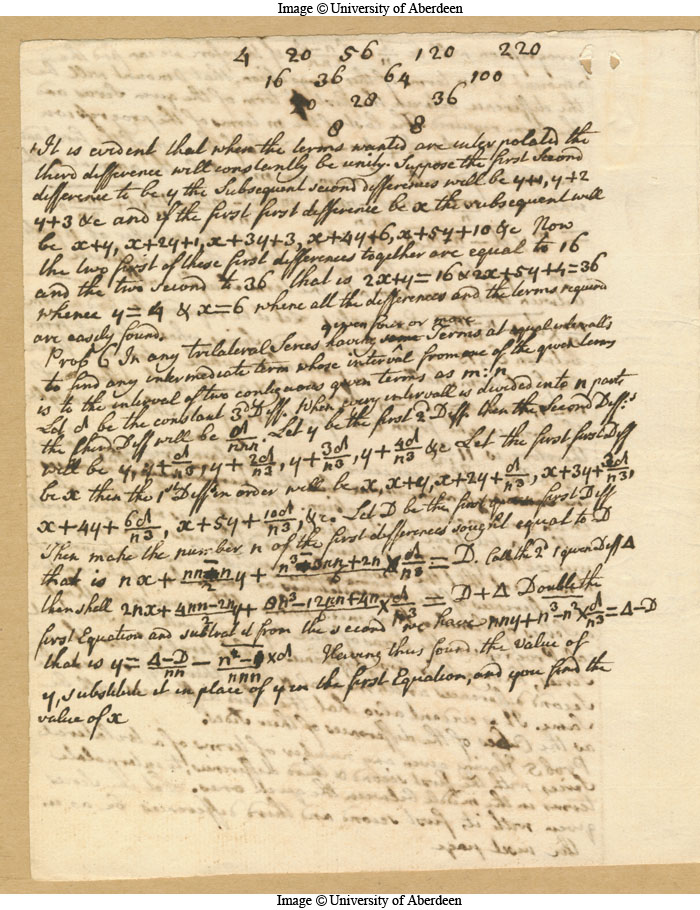 Image © University of Aberdeen
4 20 56 120 220
16 36 64 100
20 28 36
8 8
It is evident that when the terms wanted are interpolated the
third difference will constantly be unity. Suppose the first Second
difference to be y the Subsequent second differences will be y+1, y+2
y+3 &c and if the first first difference be x the subsequent will
be x+y, x+2y+1, x+3y+3, x+4y+6, x+5y+10 &c Now
the two first of these first differences together are equal to 16
and the two second to 36 that is 2x+y=16 & 2x+5y+4=36
whence y=4 & x=6 where all the differences and the terms required
are easily found.
given four or more
Prob 6 In any trilateral Series having Terms at equal intervalls
to find any intermediate term whose interval from one of the given terms
is to the interval of two contiguous given terms as m:n
Let d be the constant 3d Diff. When every intervall is divided into n parts
the third Diff will be d/nnn. Let y be the first 2d Diff then the Second Diff:s
will be y, y+d/n3, y+2d/n3, y+3d/n3, y+4d/n3 &c Let the first first Diff
be x then the 1st Diff in order will be x, x+y, x+2y+d/n3, x+3y+3d/n3,
x+4y+6d/n3, x+5y+10d/n3, &c. Let D be the first first Diff
Then make the number n of the first differences sought equal to D
that is nx+nn-n/2 y+n3-3nn+2n/6 x d/n3 = D. Call the 2d given Diff Δ
then shall 2nx+4nn-2n/2 y+8n3-12nn+4n/6 x d/n3 = D+Δ Double the
first Equation and subtract it from the second we have nny+n3-n2 x d/n3=Δ-D
that is y=Δ-D/nn - n2-n/nnn x d Having thus found the value of
y, substitute it in place of y in the first Equation, and you find the
value of x
Image © University of Aberdeen